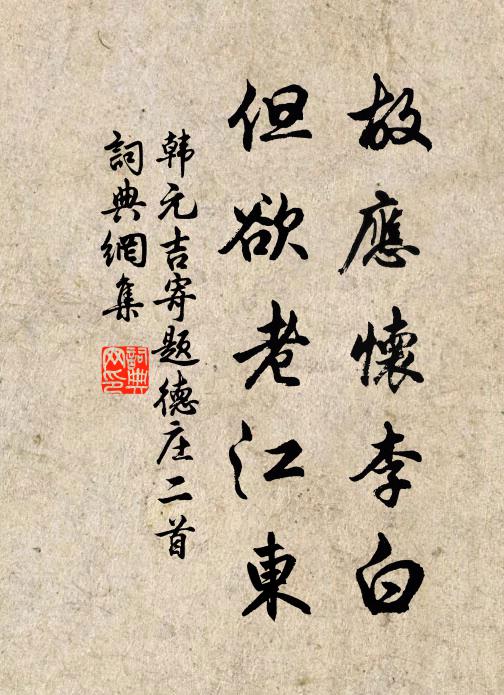 故應懷李白
但欲老江東
韩元吉寄题德庄二首
詞典網集
詞典網印